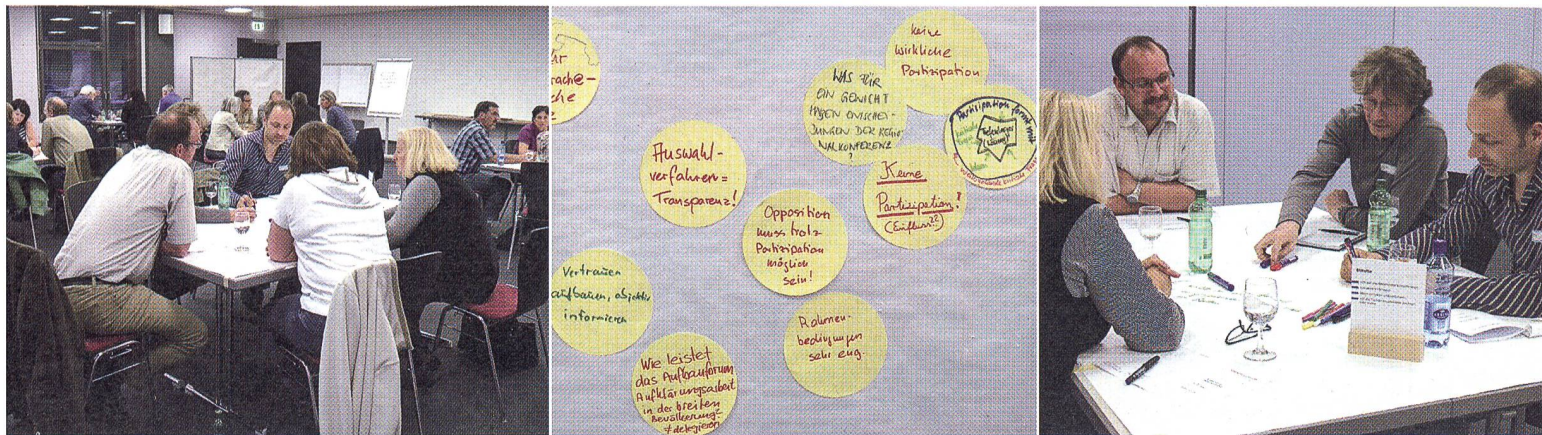 keine
wirkliche
Partizipation
WAS FÜR
EIN GEWICHT
HABEN ENTSCHEI-
DUNGEN DER REGIO-
NALKONFERENZ
?
Partizipation formt mit
Tiefenlager
Auswahl-
verfahren=
Transparenz!
Keine
Partizipation?
(Einfluss??)
Opposition
muss trotz
Partizipation
möglich
sein!
Vertrauen
aufbauen, objektiv
informieren
Rahmen-
bedingungen
sehr eng.
Wie leistet
das Aufbauforum
Aufklärungsarbeit
in der breiten
Bevölkerung?
≠ delegieren